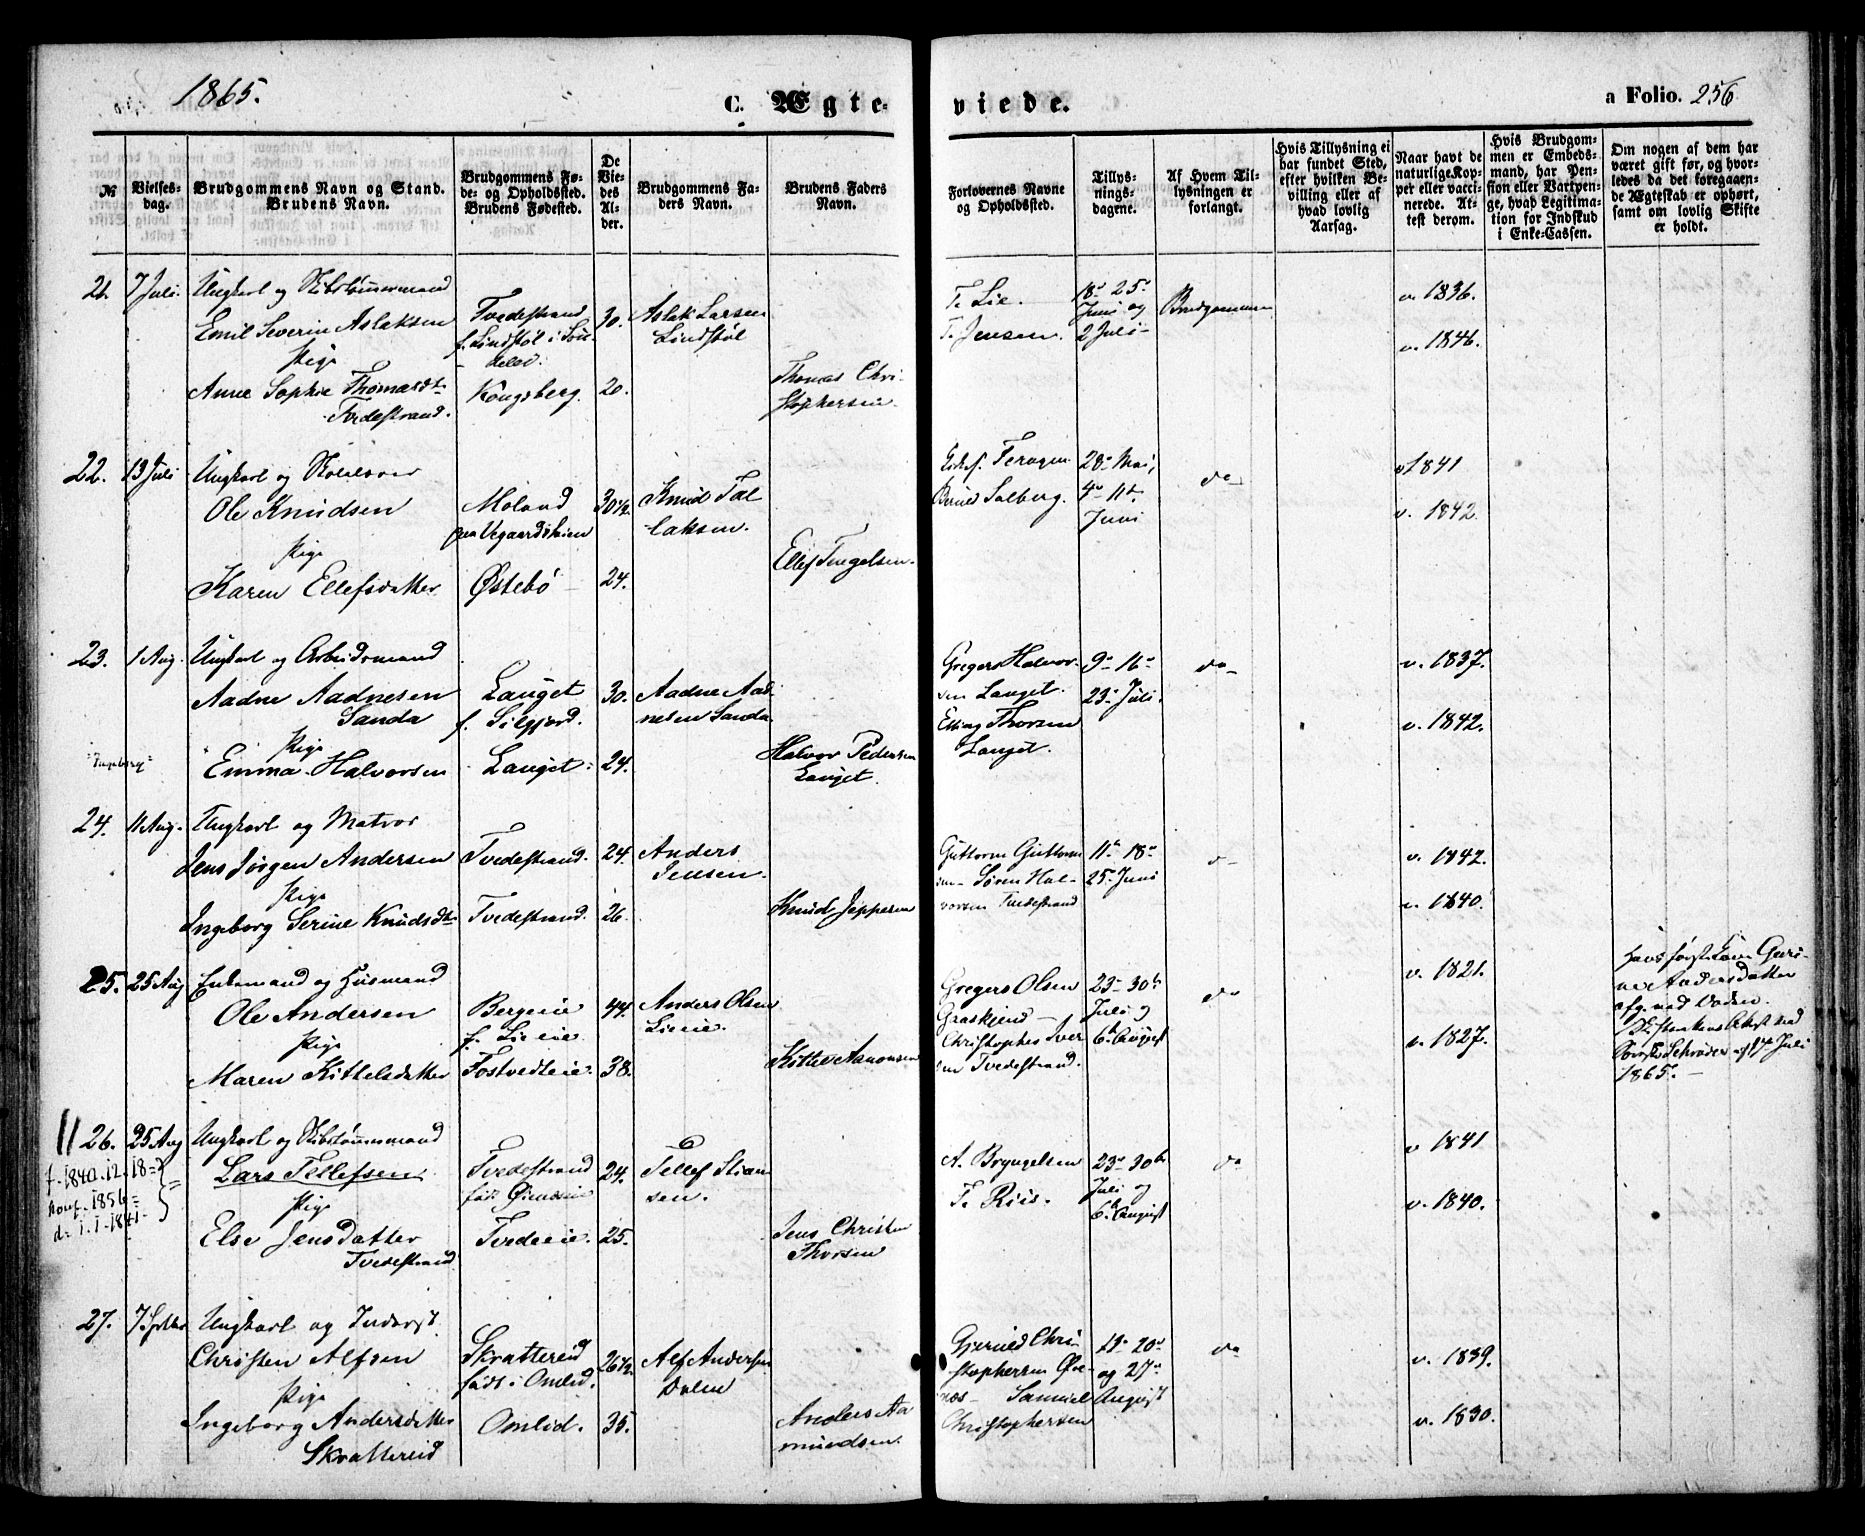 1865.
C. Ægteviede.
a Folio. 256
№
Vielsesdag.
Brudgommens Navn og Stand.
Brudens Navn.
Brudgommens Føde- og Opholdssted.
Brudens Fødested.
De Viedes Alder.
Brudgommens Faders Navn.
Brudens Faders Navn.
Forlovernes Navne og Opholdssted.
Tillysningsdagene.
Af Hvem Tillysningen er forlangt.
Hvis Tillysning ei har fundet Sted, efter hvilken Bevilling eller af hvad lovlig Aarsag.
Naar havt de naturlige Kopper eller vaccinerede. Attest derom.
Hvis Brudgommen er Embedsmand, har Pension eller Vartpenge, hvad Legitimation for Indskud i Enke-Cassen.
Om nogen af dem har været gift før, og hvorledes da det foregaaende Ægteskab er ophørt, samt om lovlig Skifte er holdt.
21. 7 Juli. Ungkarl og Skibstømmermand
Emil Severin Aslaksen
Pige
Anne Sophie Thomasdt
Tvedestrand.
Tvedestrand
f. Lindstøl i Søndeled.
Kongsberg.
30.
20.
Aslak Larsen
Lindstøl
Thomas Christophersen.
T. Lie.
T. Jensen.
18 25
Juni og
2 Juli
Brudgommen
v. 1836.
v. 1846.
22. 13 Juli Ungkarl og
Ole Knudsen
Pige
Karen Ellefsdatter
Moland
paa Vegaardsheien
Østebø
30½
24.
Knud Tallaksen.
Ellef Tengelsen.
Feragen
Salberg.
28 Mai,
4 11
Juni
do
v 1841
v. 1842.
23. 1 Aug. Ungkarl og Arbeidsmand
Aadne Aadnesen
Sanda
Pige
"Ingeborg"
Emma Halvorsen
Lauget
f. Silgjord.
Lauget
30.
24.
Aadne Aadnesen Sanda
Halvor Pedersen
Lauget.
Gregers Halvorsen Lauget.
Elling Thorsen
Lauget.
9 16
23 Juli.
do
v. 1837.
v. 1842.
24. 11 Aug. Ungkarl og Matros
Jens Jörgen Andersen
Pige
Ingeborg Serine Knudsdt
Tvedestrand.
Tvedestrand.
24.
26.
Anders
Jensen.
Knud Jeppesen
Guttorm Guttormsen Søren Halvorsen Tvedestrand
11 18
25 Juni
do
v. 1842.
v. 1840.
25. 25 Aug Enkemand og Husmand
Ole Andersen
Pige
Maren Kittelsdatter
Bergeie
f. Lieeie
Fostvedteie.
44.
38.
Anders Olsen
Lieeie.
Kittel Aanonsen
Gregers Olsen
Graaskjend
Christopher Iversen Tvedestrand.
23 30
Juli og
6 August
do
v. 1821.
v. 1827.
Hans første Kone Gurine Andersdatter
afg. ved Døden.
Skiftesakens Attest ved
Schrøder af 17 Juli
1865.
26. 25 Aug Ungkarl og Skibstømmermand
f. 1840.12.18
konf. 1856
d: 1.1.1841
Lars Tellefsen
Pige
Else Jensdatter
Tvedestrand
Tvedestrand
født
Tvedeeie.
24.
25.
Tellef Stiansen.
Jens Christen
Thorsen
A. Bryngelsen
T. Riis.
23 30
Juli og
6 August
do
v 1841
v. 1840.
27. 7. Septbr Ungkarl og Inderst.
Christen Alfsen
Pige
Ingeborg Andersdatter
Skrattereid
Skrattereid
født i Omlid.
Omlid.
26½
35.
Alf Andersen
Dalen
Anders Aamundsen.
Gjerulf Christophersen Øvenæs Samuel
Christophersen
13 20
og 27
August
do
v. 1839.
v. 1830.